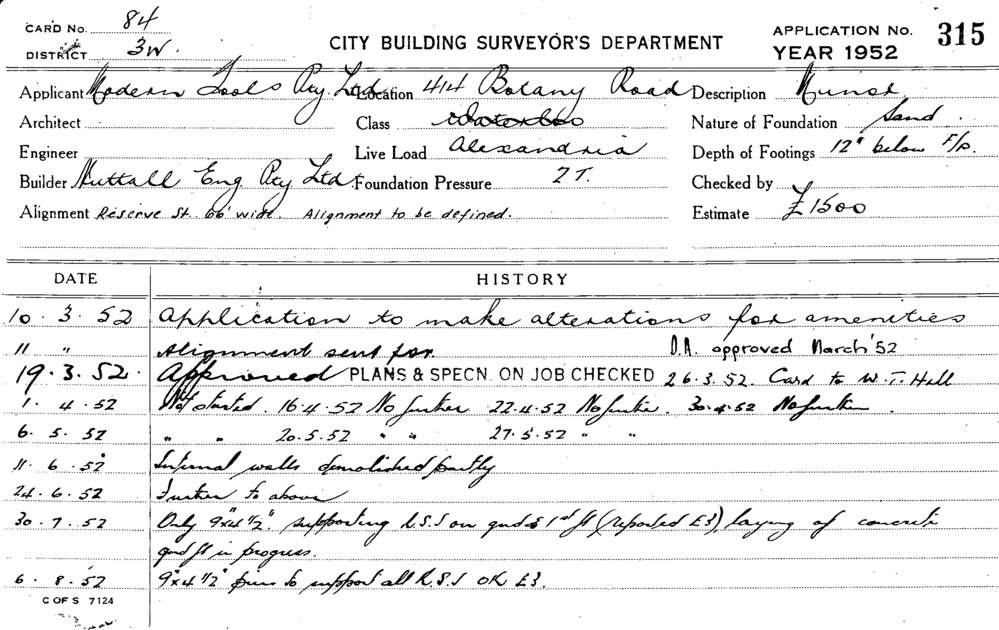 CARD No. 84
DISTRICT 3W.
CITY BUILDING SURVEYOR'S DEPARTMENT
APPLICATION No. 315
YEAR 1952
Applicant Modern Tools Pty. Ltd. Location 414 Botany Road Description
Architect Class Waterloo Nature of Foundation Sand.
Engineer Live Load Alexandria Depth of Footings 12" below F/p.
Builder Nuttall Eng Pty Ltd. Foundation Pressure 2 T. Checked by
Alignment Reserve St. 66' wide. Alignment to be defined. Estimate £1500
DATE HISTORY
10 . 3 . 52 Application to make alterations for amenities
11 " Alignment sent for. D.A. approved March '52
19 . 3 . 52 . Approved PLANS & SPECN. ON JOB CHECKED 26.3.52. Card to W.T. Hall
1 . 4 . 52 Not started. 16.4.52 No further 22.4.52 No further. 30.4.52 No further.
6 . 5 . 52 " " 20.5.52 " " 27.5.52 " "
11 . 6 . 52 Internal walls demolished partly
24 . 6 . 52 Further to above
30 . 7 . 52 Only 9"x4½" supporting R.S.J on gnd & 1st fl (reported), laying of concrete
gnd fl in progress.
6 . 8 . 52 9"x4½" piers to support all R.S.J OK
C OF S 7124